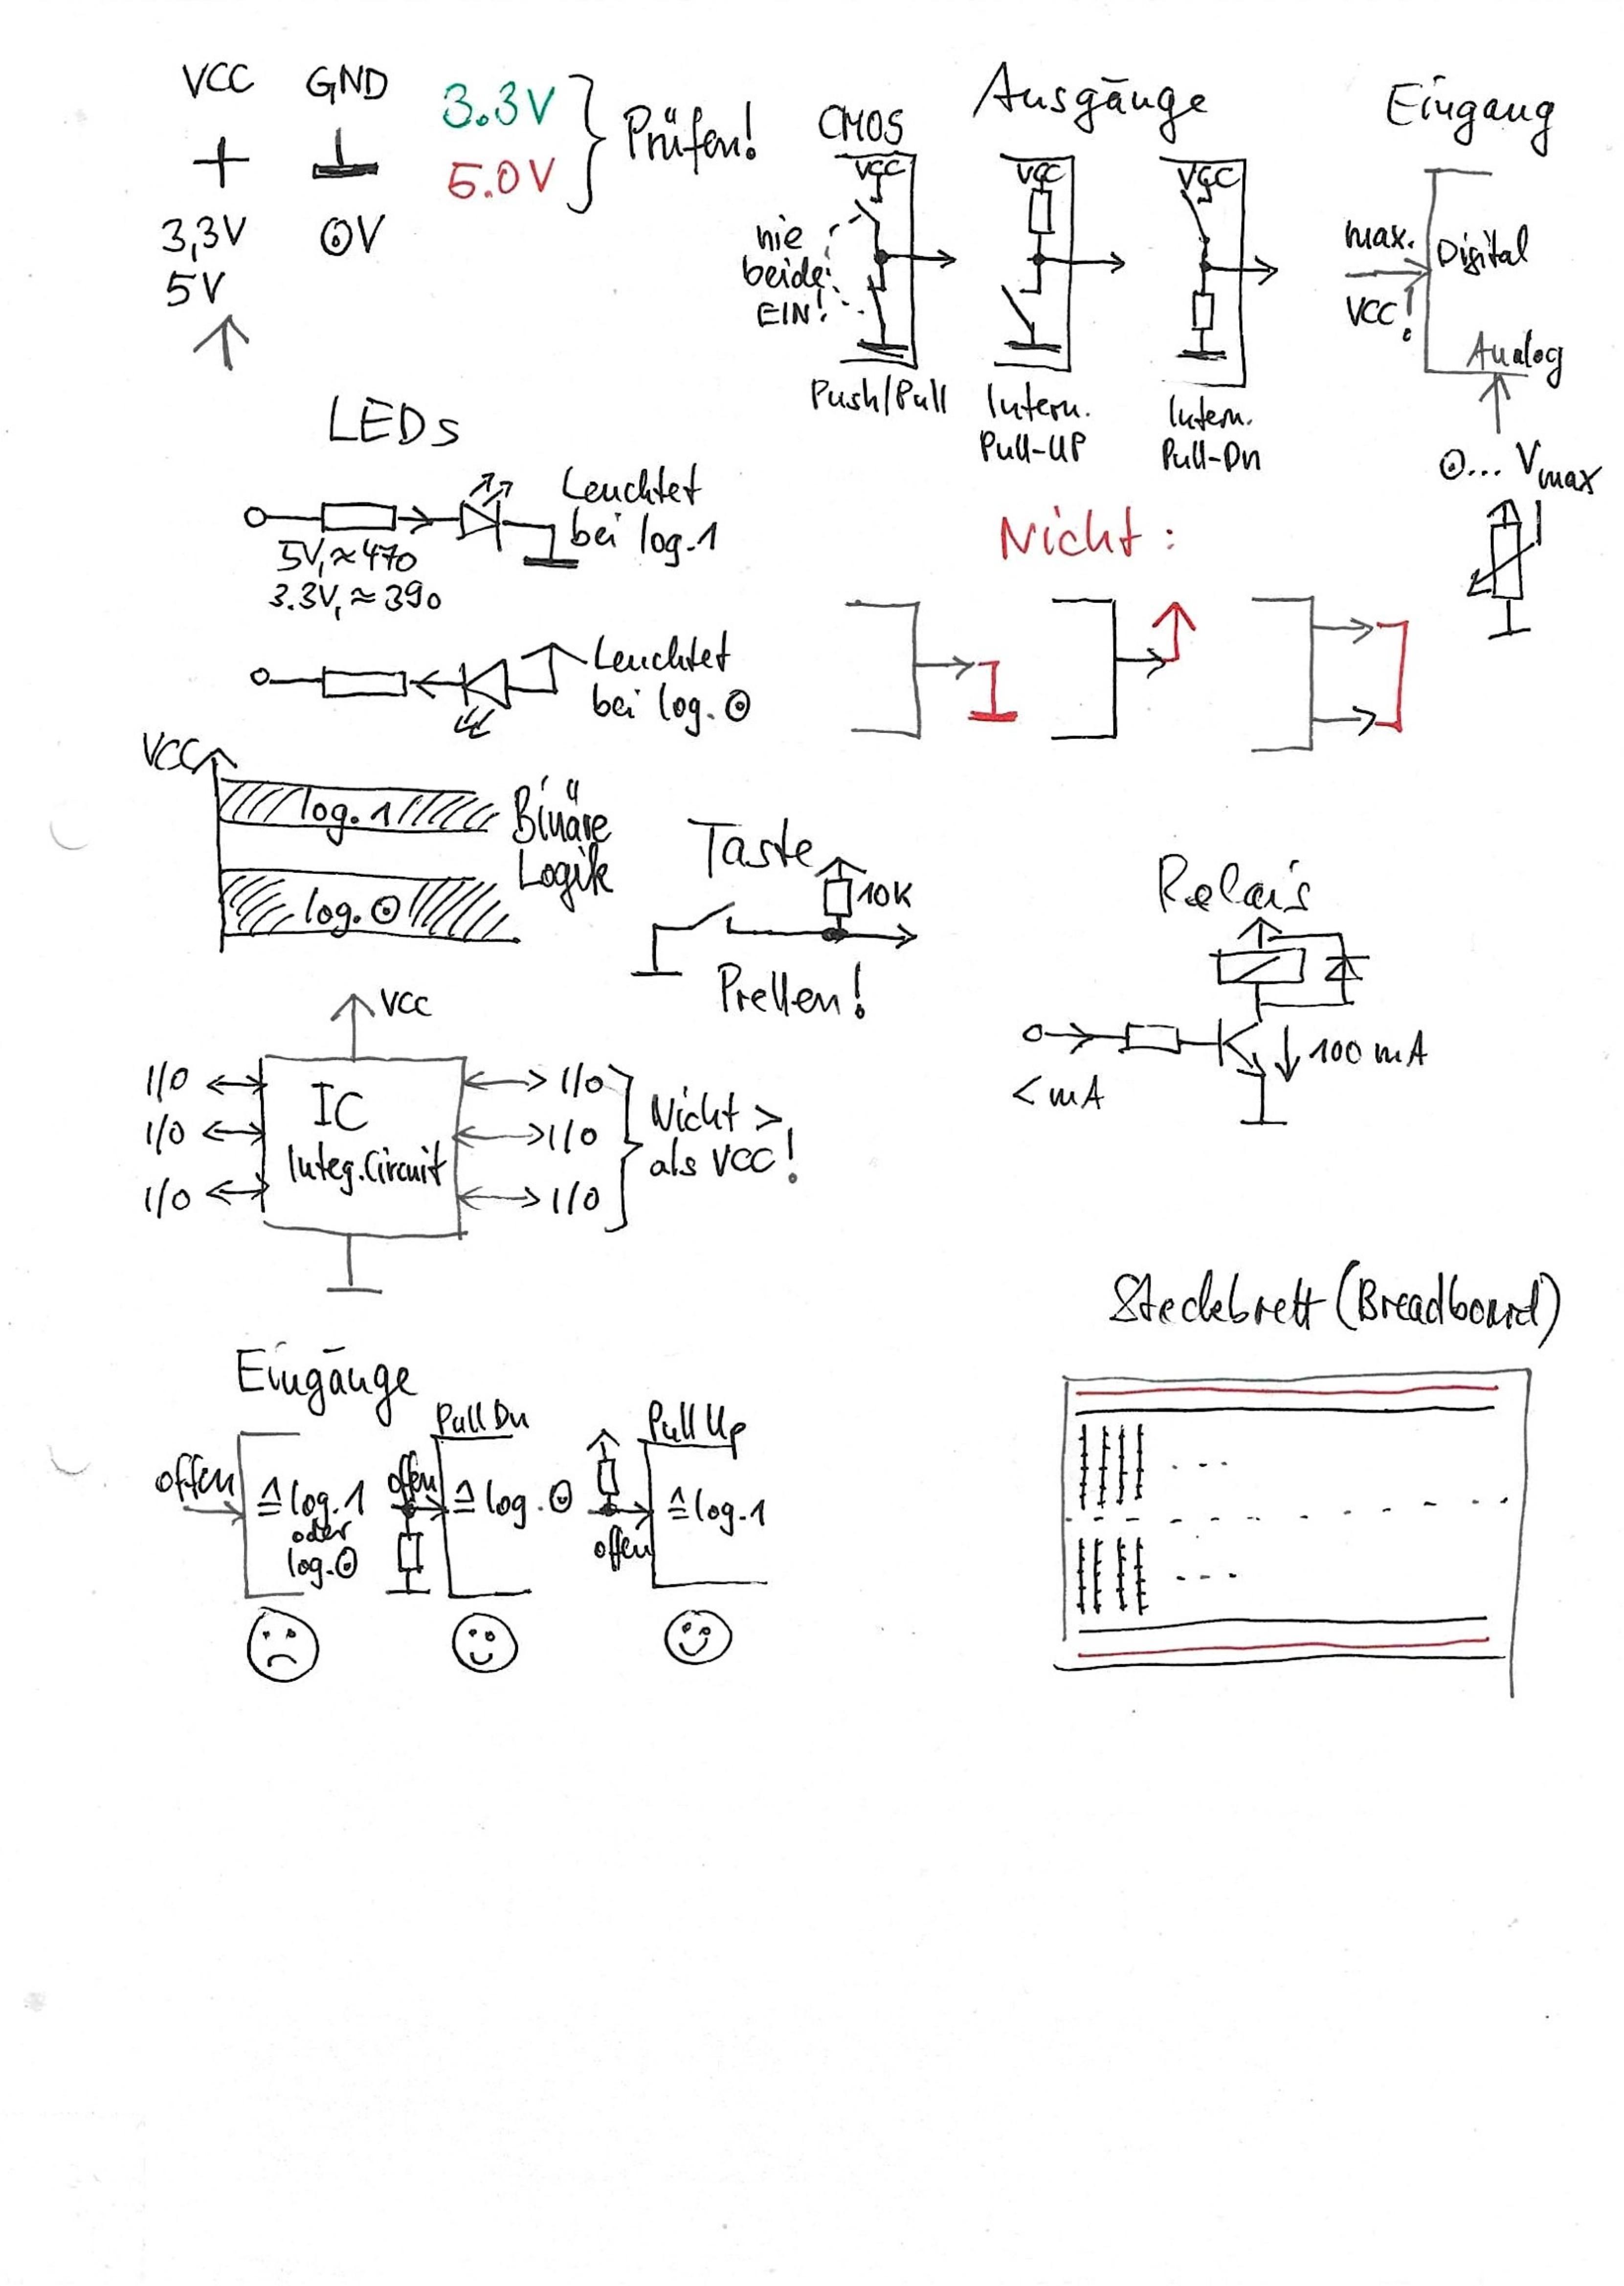 VCC GND
3.3V
5.0V
Prüfen!
+
3,3V 0V
5V
CMOS
Ausgänge
Eingang
VCC VCC VCC
nie
beide
EIN!
Push/Pull
Intern.
Pull-UP
Intern.
Pull-Dn
max.
VCC!
Digital
Analog
0... Vmax
LEDs
Leuchtet
bei log.1
5V, ≈470
3.3V, ≈390
Leuchtet
bei log.0
Nicht:
VCC
log.1
log.0
Binäre
Logik
Taste
10K
Prellen!
Relais
100mA
<mA
VCC
I/O I/O
I/O I/O
I/O I/O
IC
Integ.Circuit
Nicht >
als VCC!
Steckbrett (Breadboard)
Eingänge
Pull Dn
Pull Up
offen ≙ log.1
oder
log.0
offen ≙ log.0
≙ log.1
offen